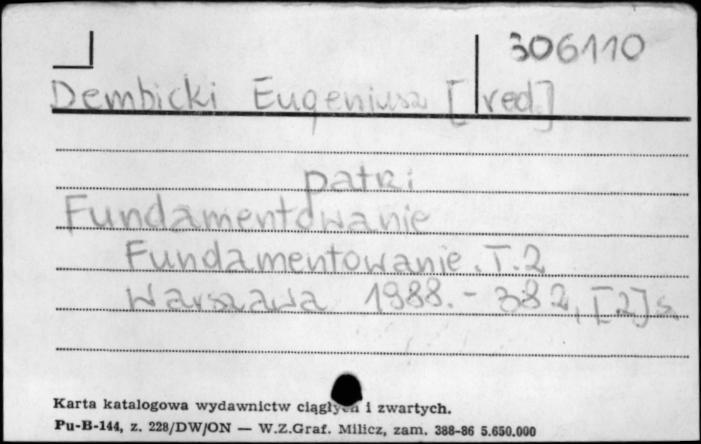 306110
Dembicki Eugeniusz [red.]
patrz:
Fundamentowanie
Fundamentowanie. T. 2
Warszawa 1988. - 382, [2] s.
Karta katalogowa wydawnictw ciągłych i zwartych.
Pu-B-144, z. 228/DW/ON — W.Z.Graf. Milicz, zam. 388-86 5.650.000